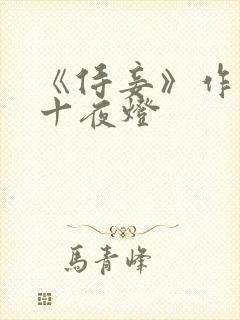 《侍妾》作
十夜燈
馬青峰